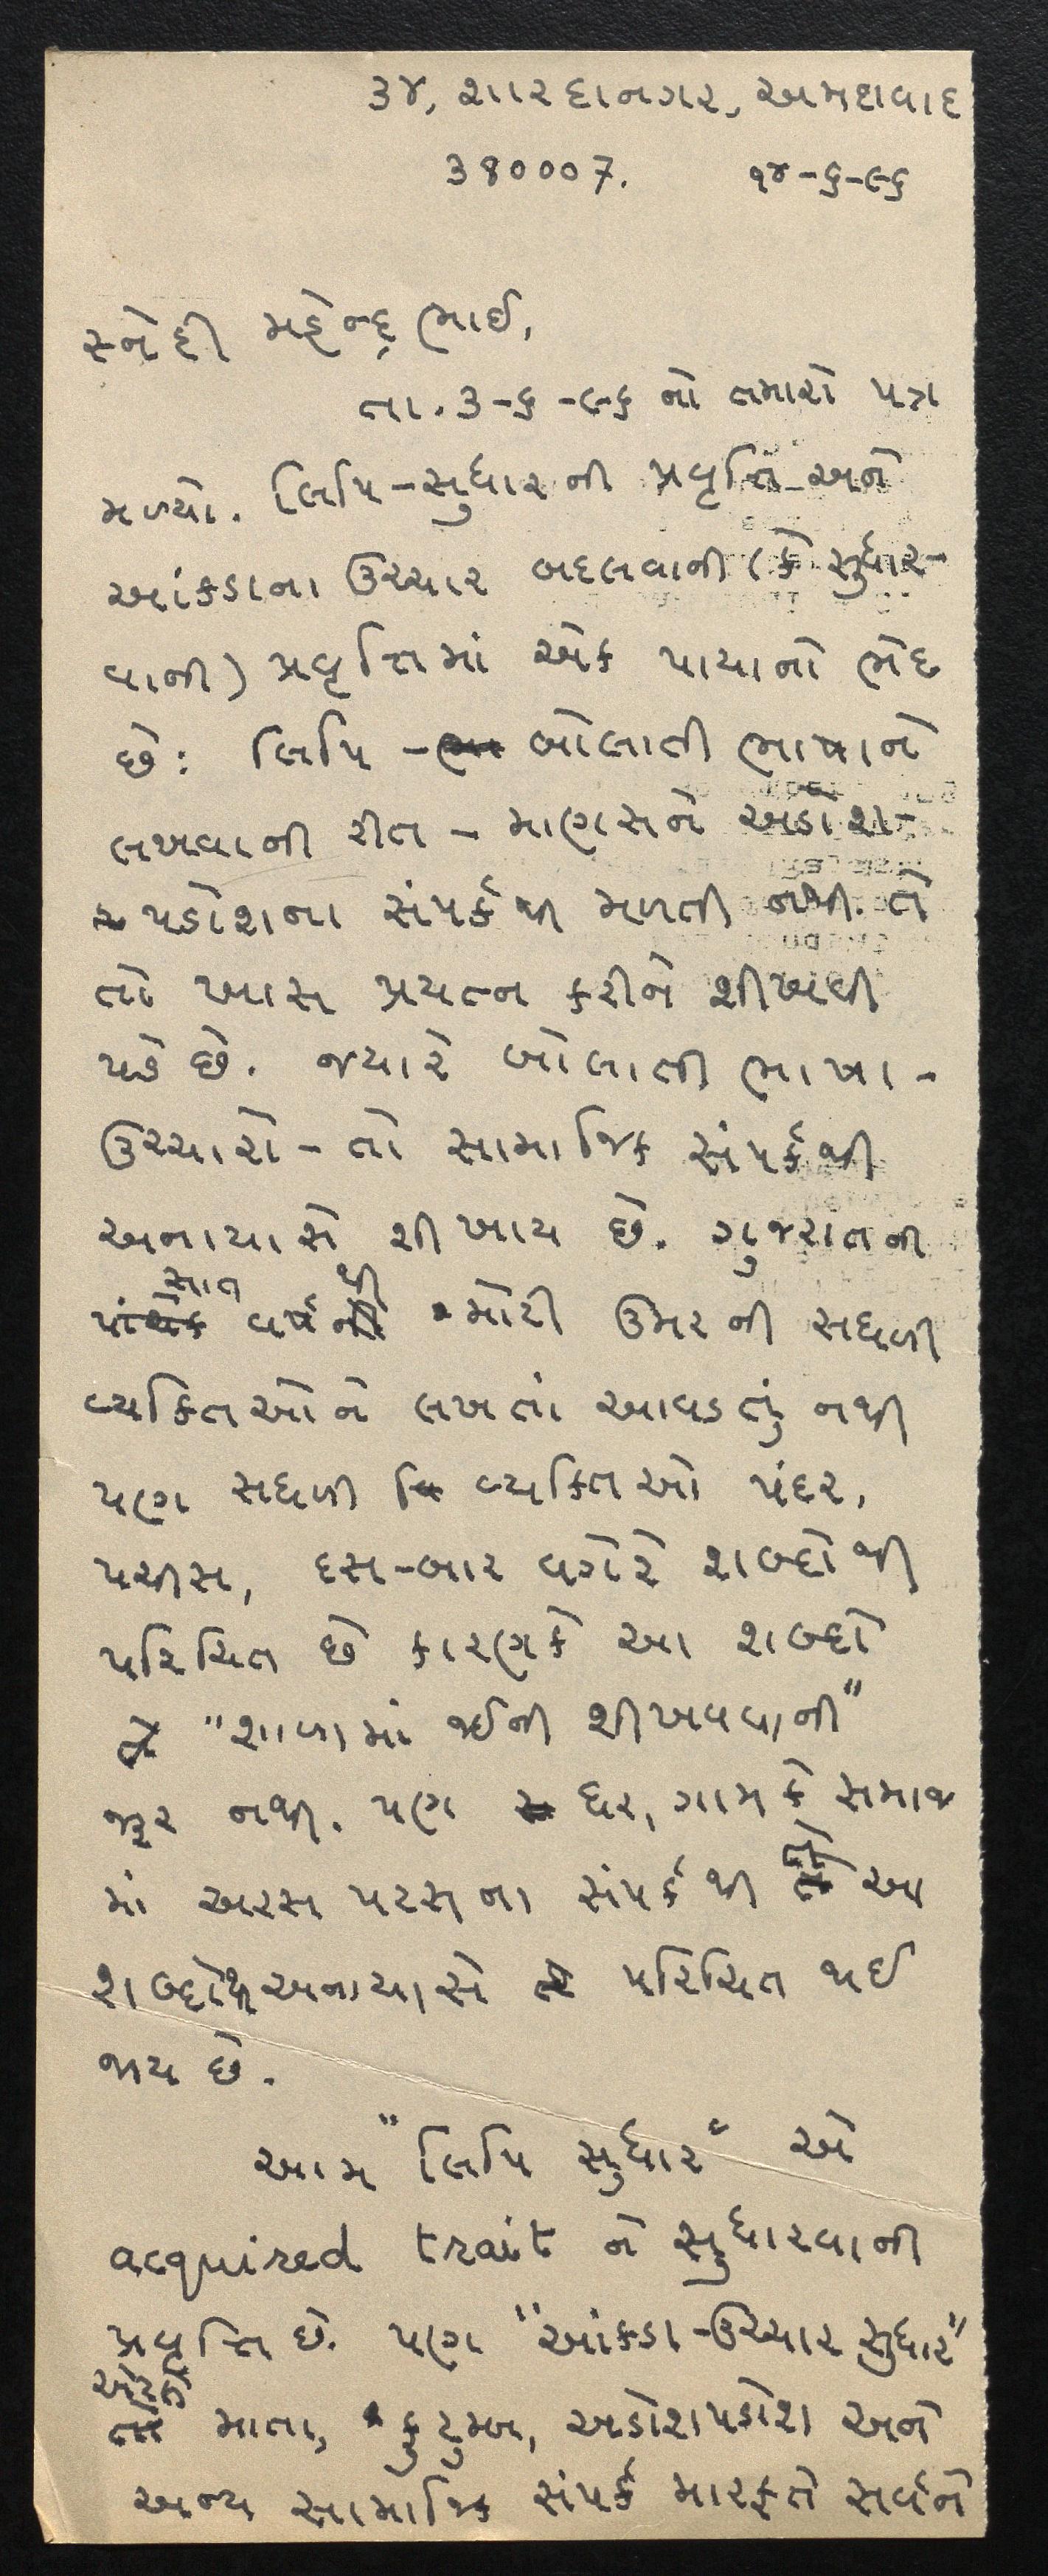 ૩૪, શારદાનગર, અમદાવાદ
380007. ૧૪-૬-૯૬
સ્નેહી મહેન્દ્રભાઈ,
તા. ૩-૬-૯૬ નો તમારો પત્ર
મળ્યો. લિપિ-સુધારની પ્રવૃત્તિ અને
આંકડાના ઉચ્ચાર બદલવાની (કે સુધાર-
વાની) પ્રવૃત્તિમાં એક પાયાનો ભેદ
છે: લિપિ - બોલાતી ભાષાને
લખવાની રીત - માણસને અડોશ-
પડોશના સંપર્કથી મળતી નથી. તે
તો ખાસ પ્રયત્ન કરીને શીખવી
પડે છે. જ્યારે બોલાતી ભાષા -
ઉચ્ચારો - તો સામાજિક સંપર્કથી
અનાયાસે શીખાય છે. ગુજરાતની
સાત વર્ષથી મોટી ઉમરની સઘળી
વ્યકિતઓને લખતાં આવડતું નથી
પણ સઘળી વ્યકિતઓ પંદર,
પચીસ, દસ-બાર વગેરે શબ્દોથી
પરિચિત છે કારણકે આ શબ્દો
"શાળામાં જઈની શીખવવાની"
જરૂર નથી. પણ ઘર, ગામ કે સમાજ
માં અરસ પરસના સંપર્કથી તે આ
શબ્દોથી અનાયાસે પરિચિત થઈ
જાય છે.
આમ "લિપિ સુધાર" એ
acquired trait ને સુધારવાની
પ્રવૃત્તિ છે. પણ "આંકડા-ઉચ્ચાર સુધાર"
માતા, કુટુમ્બ, અડોશપડોશ અને
અન્ય સામાજિક સંપર્ક મારફતે સર્વને